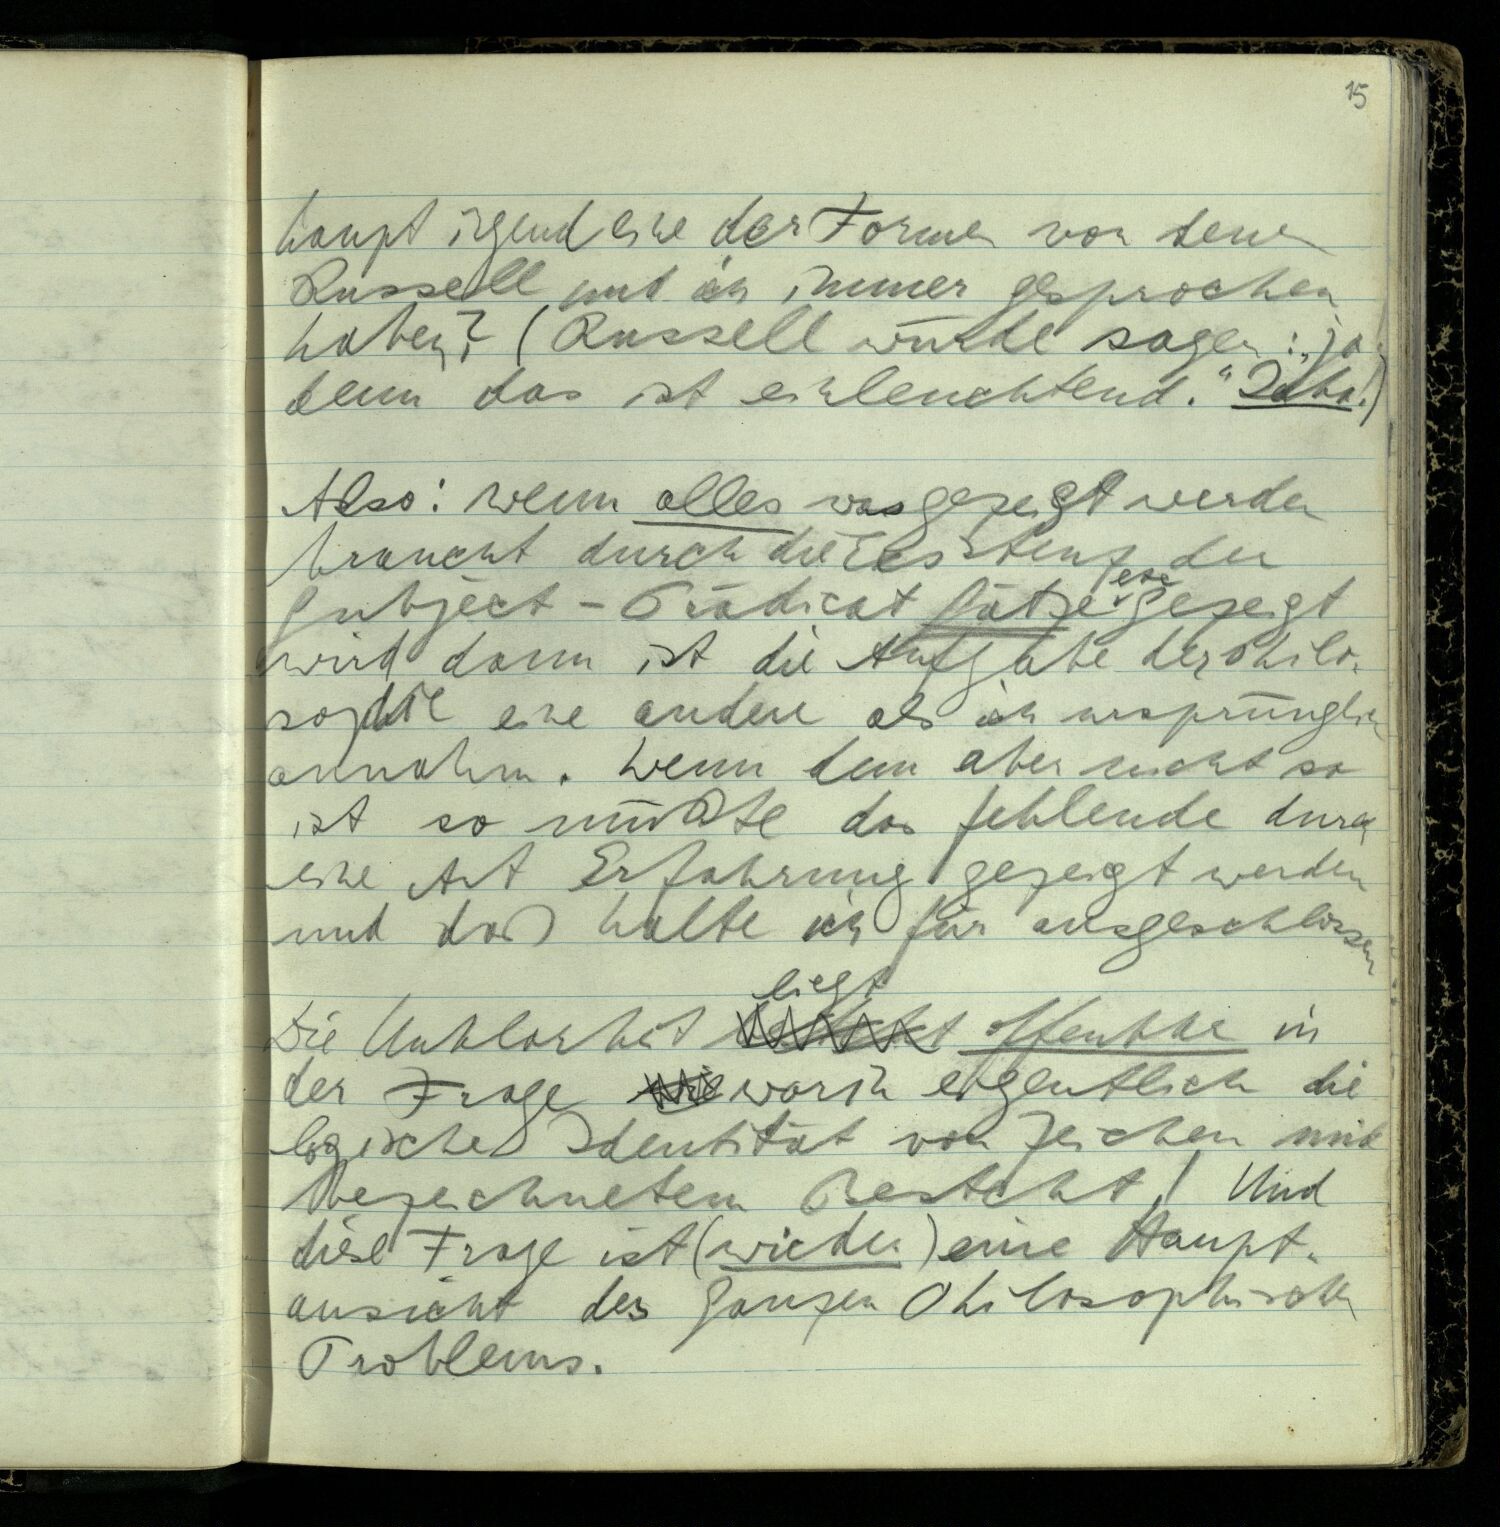 15
haupt irgend eine der Formen von denen
Russell und ich immer gesprochen
haben? (Russell würde sagen: „ja
denn das ist einleuchtend.“ Jaha!)
Also: wenn alles was gezeigt werden
braucht durch die Existenz der
Subject-Prädicat Sätze etc gezeigt
wird dann ist die Aufgabe der Philo-
sophie eine andere als ich ursprünglich
annahm. Wenn dem aber nicht so
ist so müßte das fehlende durch
eine Art Erfahrung gezeigt werden
und das halte ich für ausgeschlossen
liegt
Die Unklarheit offenbar in
der Frage worin eigentlich die
logische Identität von Zeichen und
bezeichnetem Besteht! Und
diese Frage ist (wieder) eine Haupt-
ansicht des Ganzen Philosophischen
Problems.